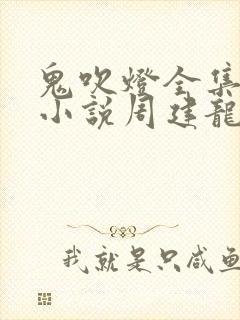 鬼吹燈全集
小説周建龍
我就是只咸魚